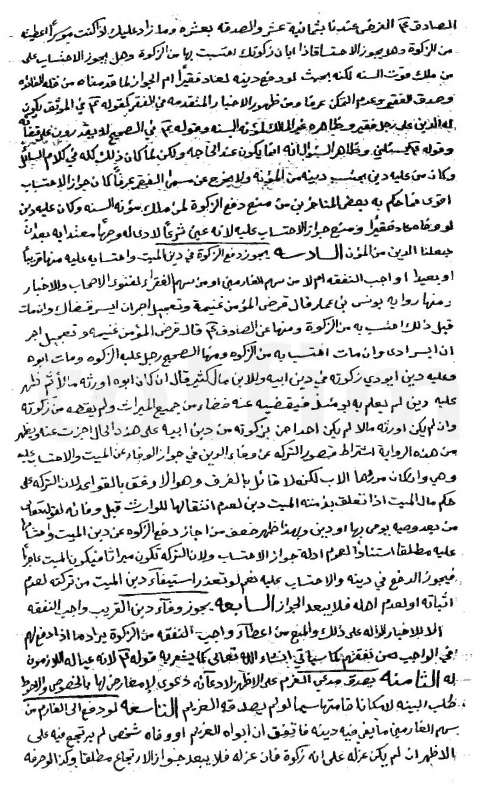 الصادق ع القرض عندنا بثمانية عشر والصدقة بعشرة وما زاد عليك لو كنت موسراً اعطيته
من الزكوة وهل يجوز الاحتساب فاذا ابان زكوتك احتسبت بها من الزكوة وهل يجوز الاحتساب على
من ملك قوت السنة لكنه بحيث لو دفع دينه لعاد فقيراً ام الجواز لما قدمناه من
وصدق الفقير وعدم التمكن عرفا ومن ظهور الاخبار المتقدمة في الفقير كقوله ع في الموثق يكون
له الدين على رجل فقير وظاهره غير المالك لمؤنة السنة وقوله ع في الصحيح لا يقدرون على قضائه
وقوله وظاهر السؤال انه انما يكون عند الحاجة ولكن لما كان ذلك كله في كلام السائل
وكان من عليه دين يحتسب دينه من المؤنة ولا يخرج عن سمى الفقير عرفاً كان جواز الاحتساب
اقوى فما حكم به بعض المتاخرين من منع دفع الزكوة لمن ملك مؤنة السنة وكان عليه دين
لو وفاه عاد فقيراً ومنع جواز الاحتساب عليه لانه غني شرعاً لا ارى له وجهاً معتداً به بعد ان
جعلنا الدين من المؤن السادسة يجوز دفع الزكوة في دين الميت واحتسابه عليه منها قريباً
او بعيداً واجب النفقة ام لا من سهم الغارمين او من سهم الفقراء لفتوى الاصحاب والاخبار
منها رواية يونس بن عمار قال قرض المؤمن غنيمة وتعجيل اجر ان ايسر قضاك وان مات
قبل ذلك احتسب به من الزكوة ومنها عن الصادق ع قال قرض المؤمن غنيمة وتعجيل اجر
ان ايسر ادى وان مات احتسب به من الزكوة ومنها الصحيح رجل عليه الزكوة ومات ابوه
وعليه دين ايودي زكوته في دين ابيه وللابن مال كثير قال ان كان ابوه اورثه مالا ثم ظهر
عليه دين لم يعلم به يومئذ فيقضيه عنه قضاه من جميع الميراث ولم يقضه من زكوته
وان لم يكن اورثه مالا لم يكن احد احق بزكوته من دين ابيه على هذه الحال اجزت عنه ويظهر
من هذه الرواية اشتراط قصور التركة عن وفاء الدين في جواز الوفاء عن الميت والاحتساب عليه
وهي وان كان موردها الاب لكن لا قائل بالفرق وهو الاوفق بالقواعد لان التركة على
حكم مال الميت اذا تعلق بذمته الميت دين لعدم انتقالها للوارث قبل وفائه لقوله تعالى
من بعد وصية يوصى بها او دين وبهذا ظهر ضعف من اجاز دفع الزكوة عن دين الميت واحتسابها
عليه مطلقا استناداً لعموم ادلة جواز الاحتساب ولان التركة تكون ميراثا فيكون الميت عاجزاً
فيجوز الدفع في دينه والاحتساب عليه نعم لو تعذر استيفاء دين الميت من تركته لعدم
اثباته او لعدم اهله فلا يبعد الجواز السابعة يجوز وفاء دين القريب واجب النفقة
للاخبار الدالة على ذلك والمنع من اعطاء واجب النفقة من الزكوة يراد ما اذا دفع لهم
في الواجب من نفقتهم كما سياتي انشاء الله تعالى كما يشعر به قوله ع لانه عياله لازمون
له الثامنة يصدق مدعي الغرم على الاظهر لادعائه دعوى لا معارض لها والاحوط
طلب البينة لامكان اقامتها سيما لو لم يصدقه الغريم التاسعة لو دفع الى الغارم من
سهم الغارمين ما يفي فيه دينه فاتفق ان ابراه الغريم او وفاه شخص لم يرتجع فيه على
الاظهر ان لم يكن عزله على انه زكوة فان عزله فلا يبعد جواز الارتجاع مطلقا وكذا لو صرفه